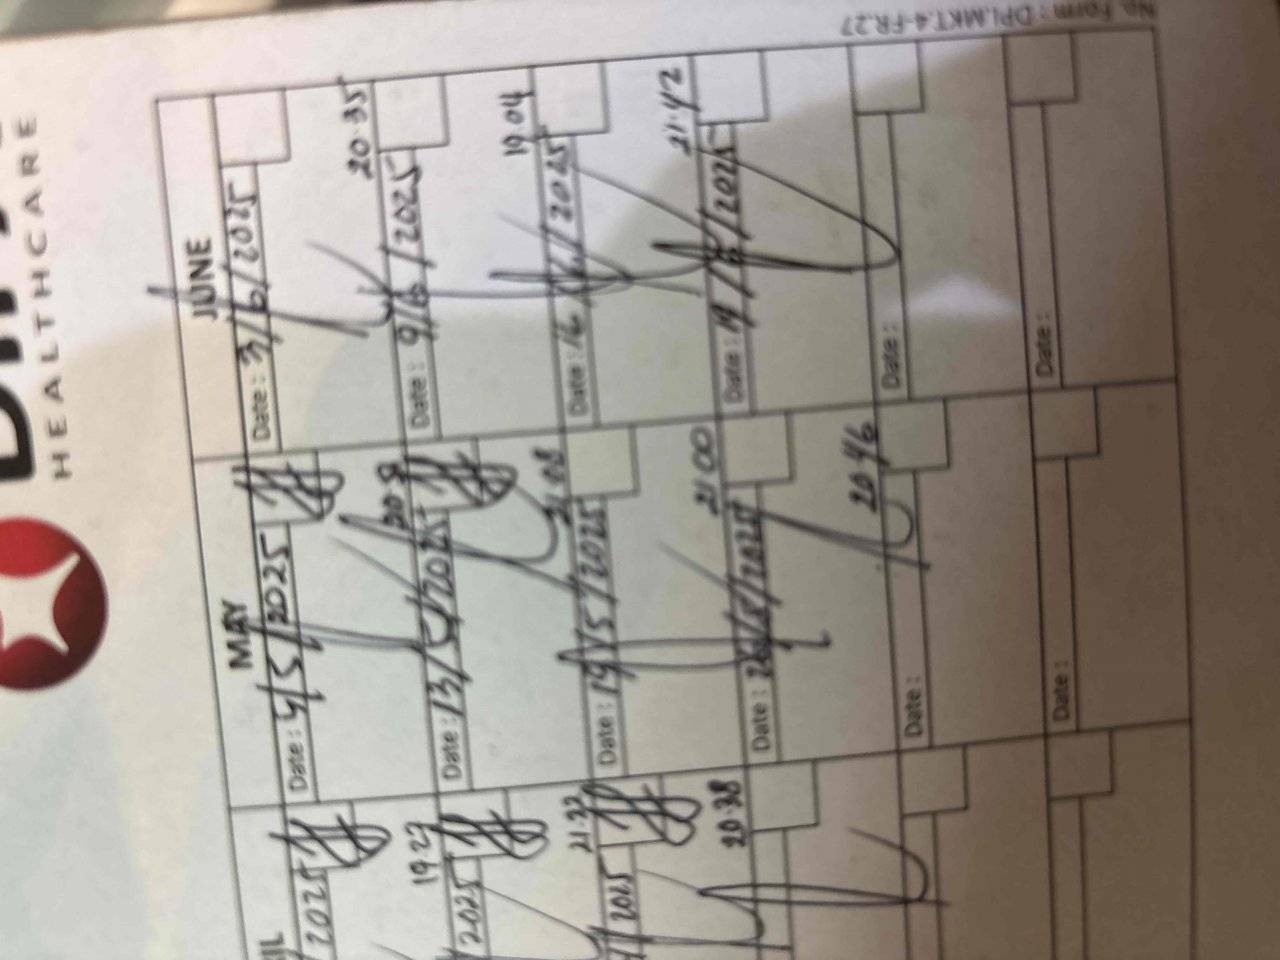 HEALTHCARE
No. Form : DPI.MKT.4-FR.27
MAY
Date: 4/5/2025
Date: 13/5/2025
21.08
Date: 19/5/2025
21.00
Date: 26/5/2025
20.46
Date:
Date:
JUNE
Date: 3/6/2025
20.35
Date: 9/6/2025
19.04
Date: 16/6/2025
21.42
Date: 19/6/2025
Date:
Date:
2025
2025
21.32
2025
20.38